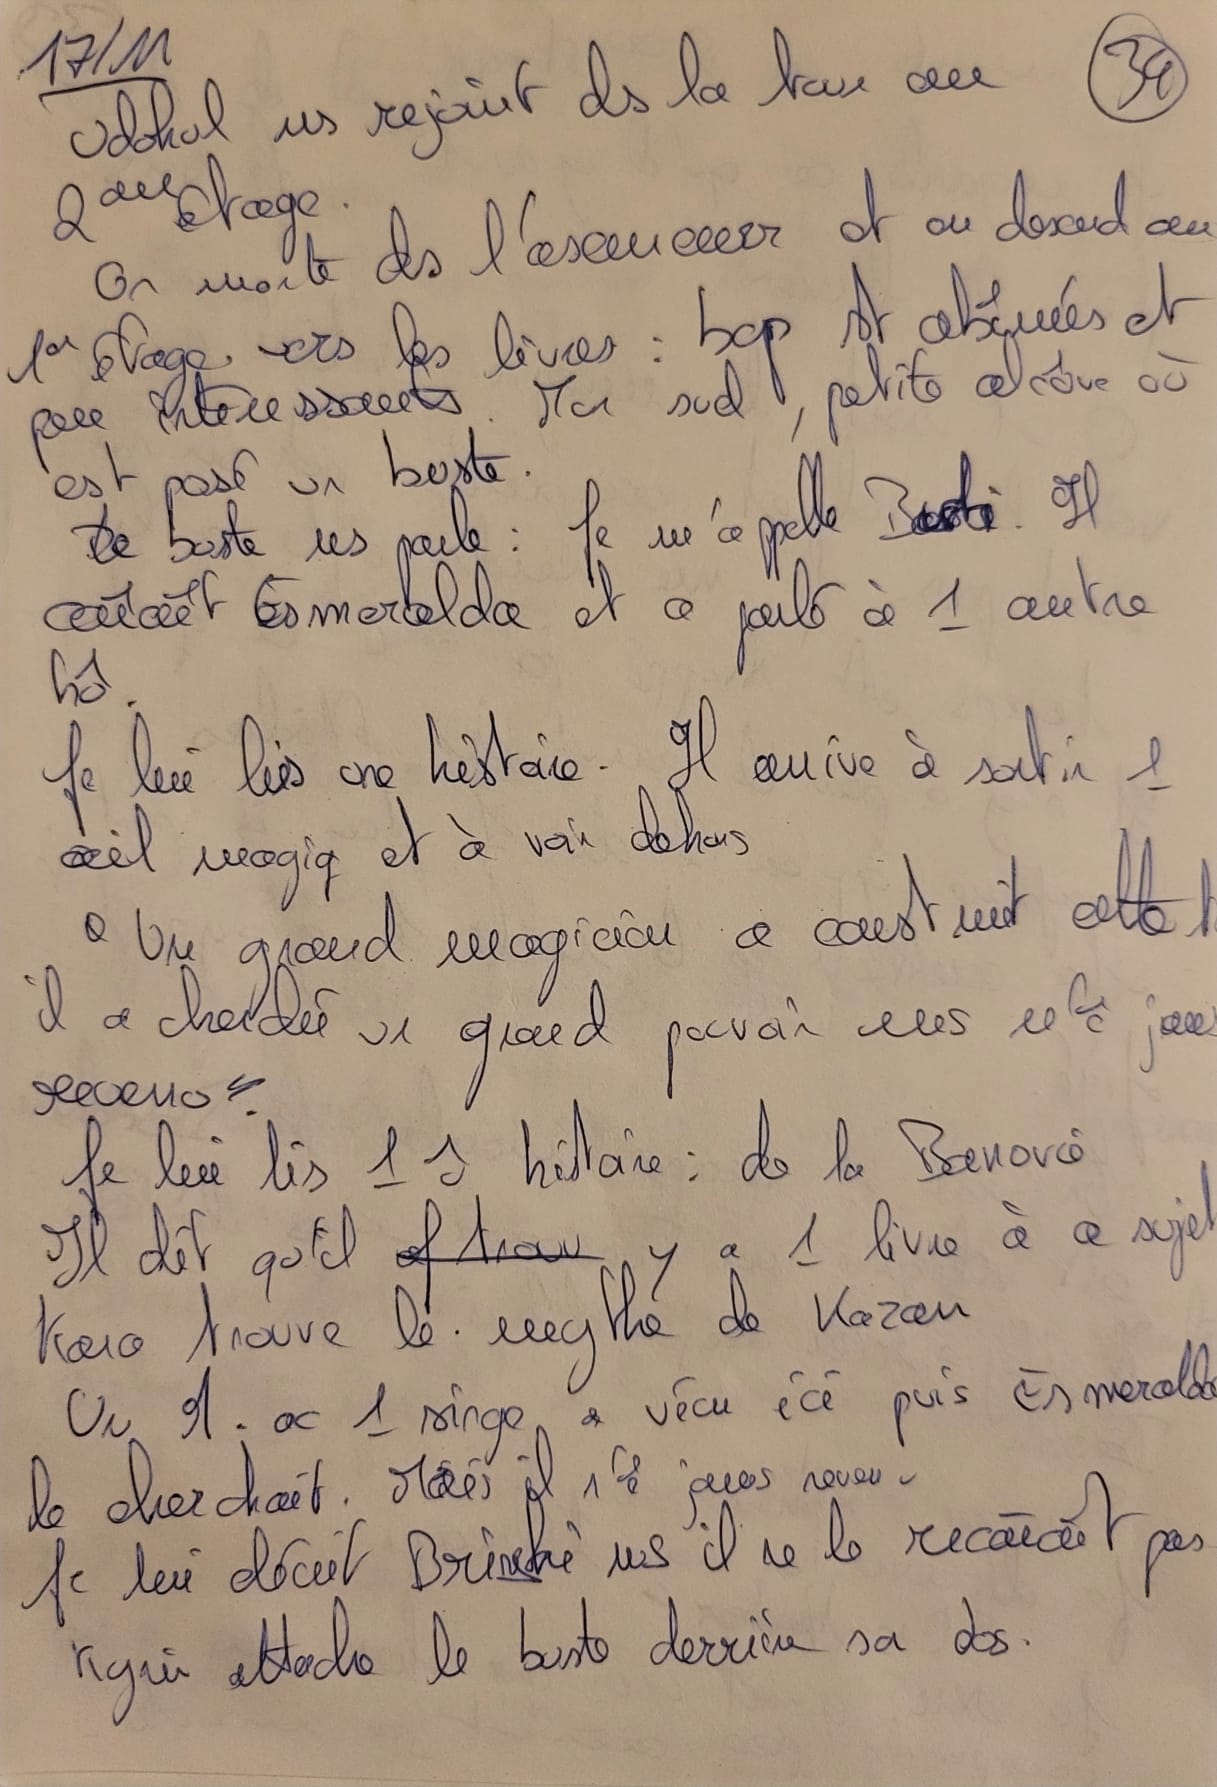 17/11
34
Odohul ns rejoint ds la tour au
2ème étage.
On monte ds l'ascenceur et on descend au
1er étage vers les livres : bcp st abîmés et
peu intéressants. Mur sud, petite alcôve où
est posé un buste.
Le buste ns parle : Je m'appelle Busti. Il
connait Esmeralda et a parlé à 1 autre
hô.
Je lui lis une histoire. Il arrive à sortir 1
œil magiq et à voir dehors
" Un grand magicien a construit cette t
il a cherché un grand pouvoir ms n'est jams
revenu ".
Je lui lis 1 histoire : de la
Il dit qu'il y a 1 livre à ce sujet
Kara trouve le mythe de Kazan
Un ac 1 singe a vécu ici puis Esmeralda
le cherchait. Mais il n'est jams revenu
Je lui décrit ms il ne le reconnait pas
Kyrii attache le buste derrière son dos.